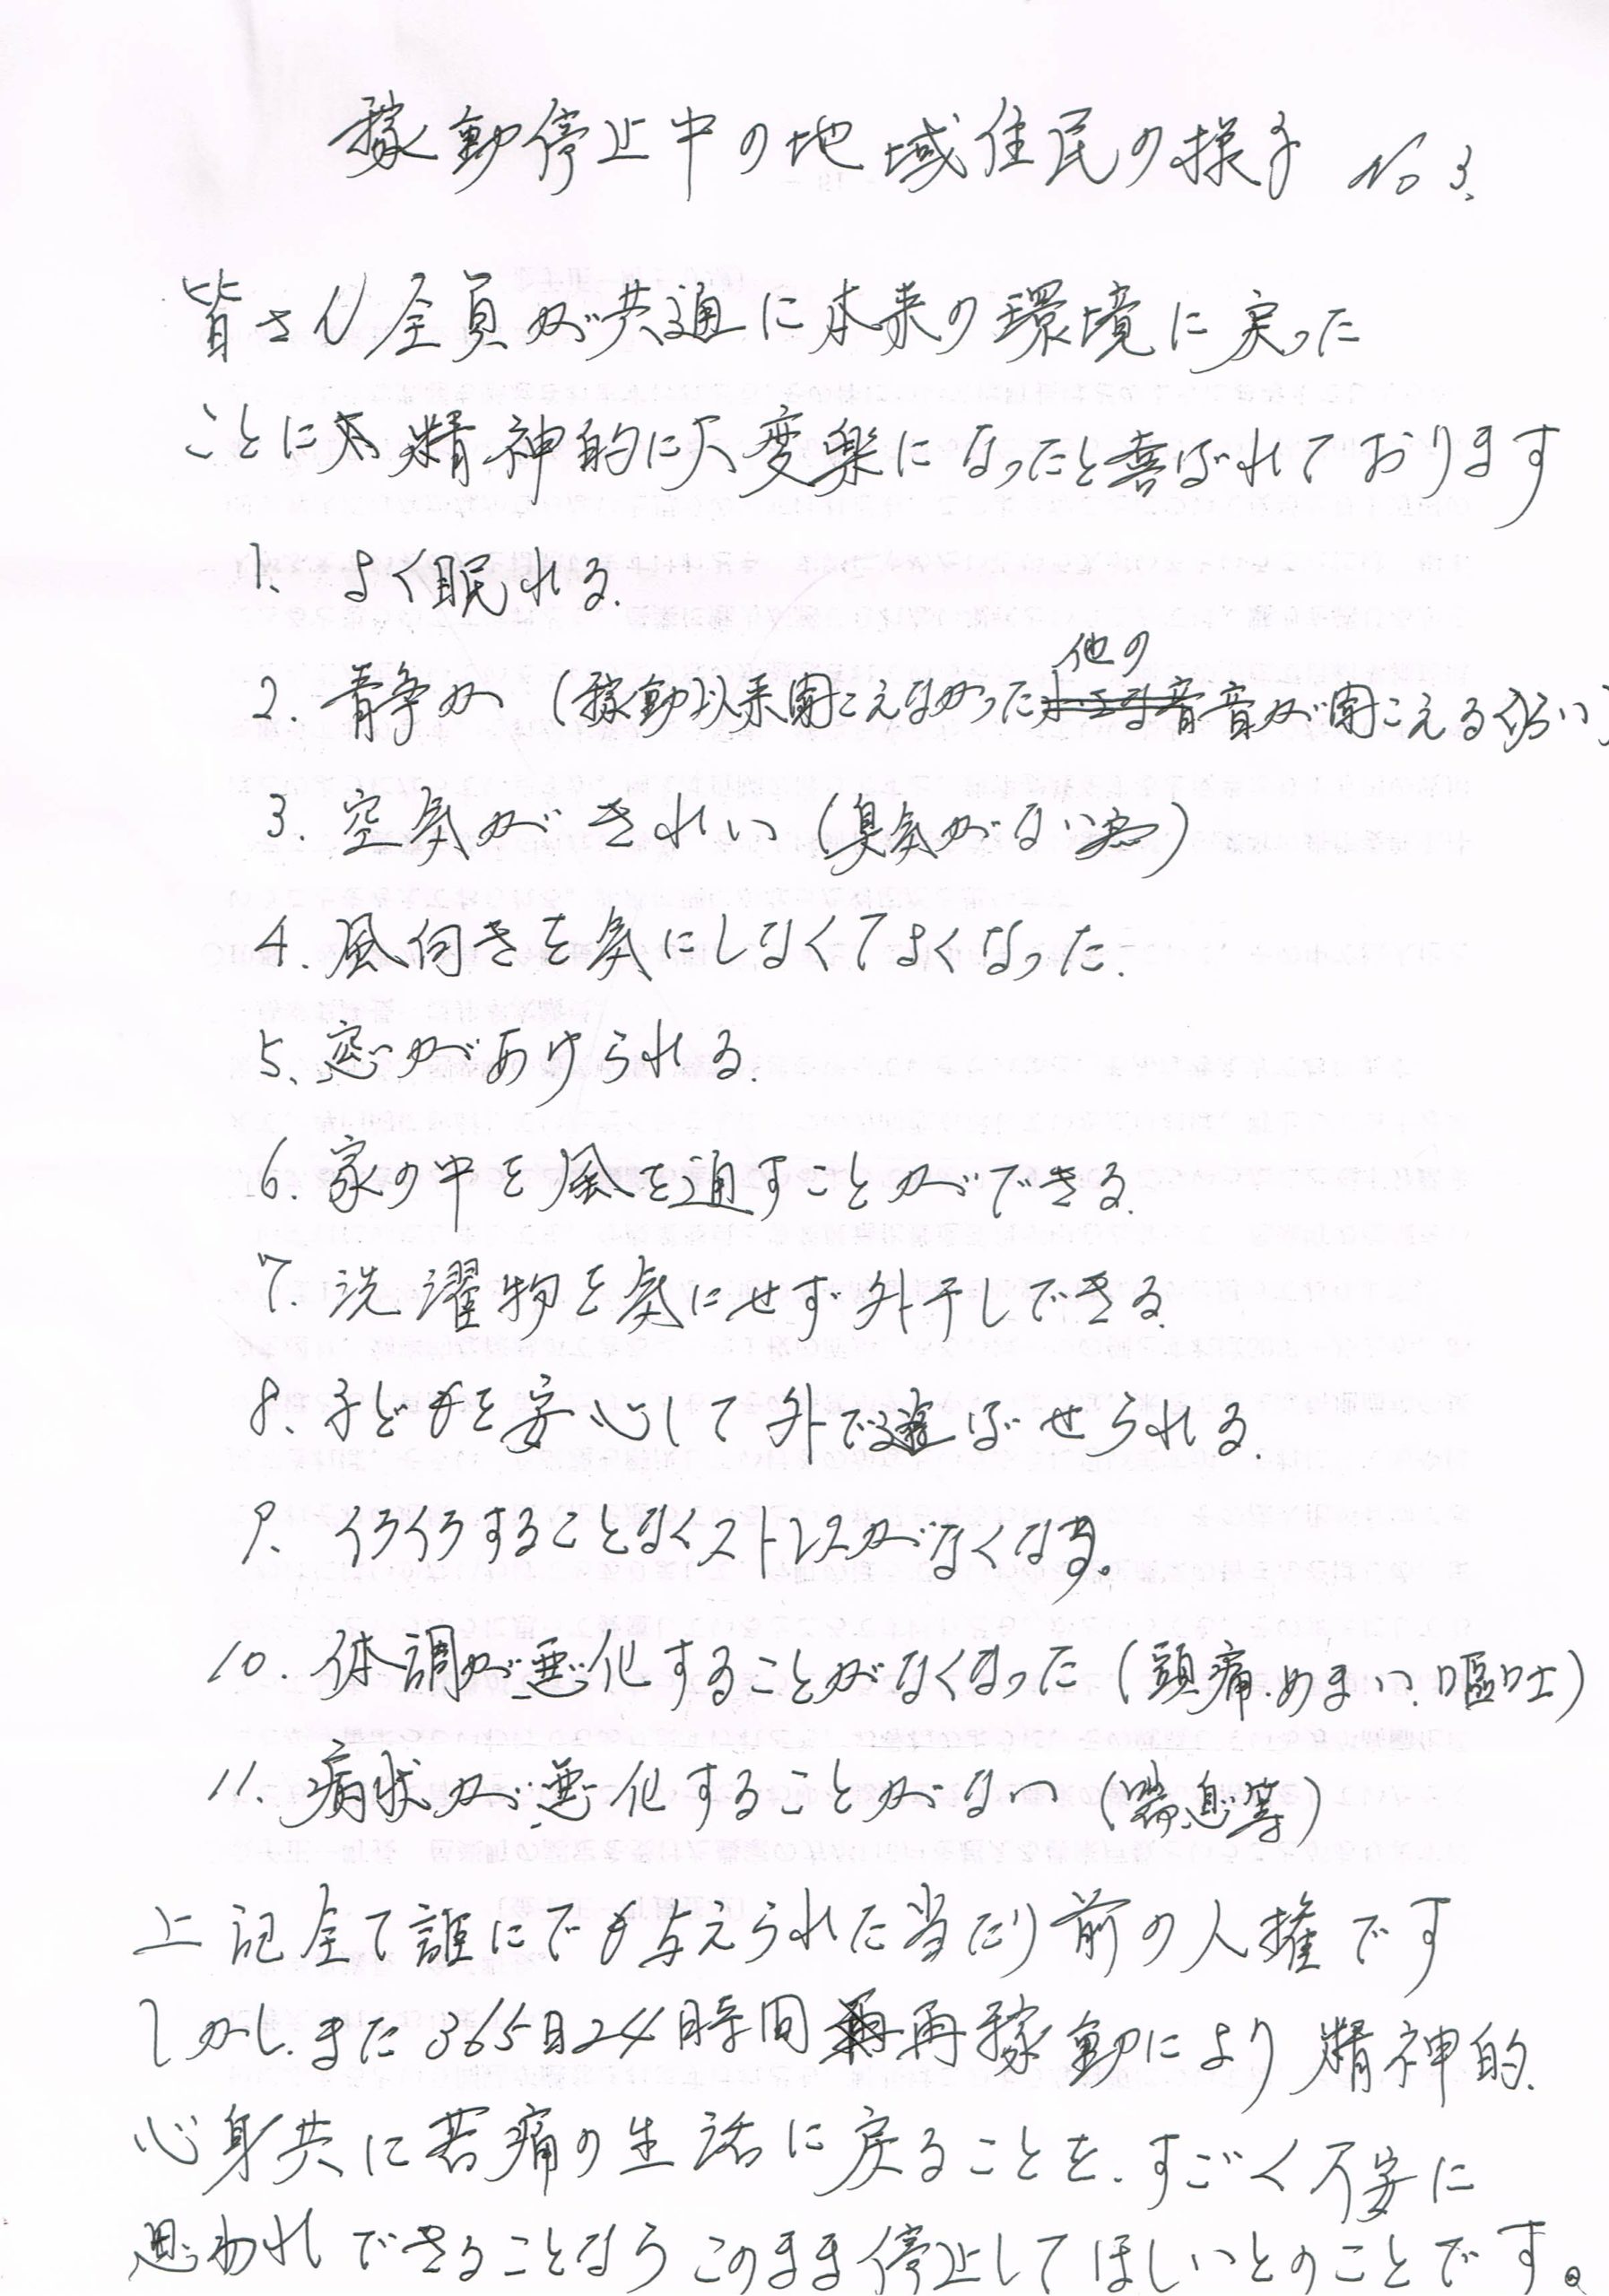 稼動停止中の地域住民の様子 No 3.
皆さん全員が共通に本来の環境に戻った
ことに 精神的に大変楽になったと喜ばれております
1. よく眠れる.
2. 静か (稼動以来聞こえなかった他の音が聞こえる位い)
3. 空気がきれい (臭気がない為)
4. 風向きを気にしなくてよくなった.
5. 窓があけられる.
6. 家の中を風を通すことができる.
7. 洗濯物を気にせず外干しできる.
8. 子どもを安心して外で遊ばせられる.
9. イライラすることなくストレスがなくなる。
10. 体調が悪化することがなくなった (頭痛.めまい.嘔吐)
11. 病状が悪化することがない (喘息等)
上記全て誰にでも与えられた当たり前の人権です
しかし.また365日24時間再稼動により精神的.
心身共に苦痛の生活に戻ることを.すごく不安に
思われできることならこのまま停止してほしいとのことです。